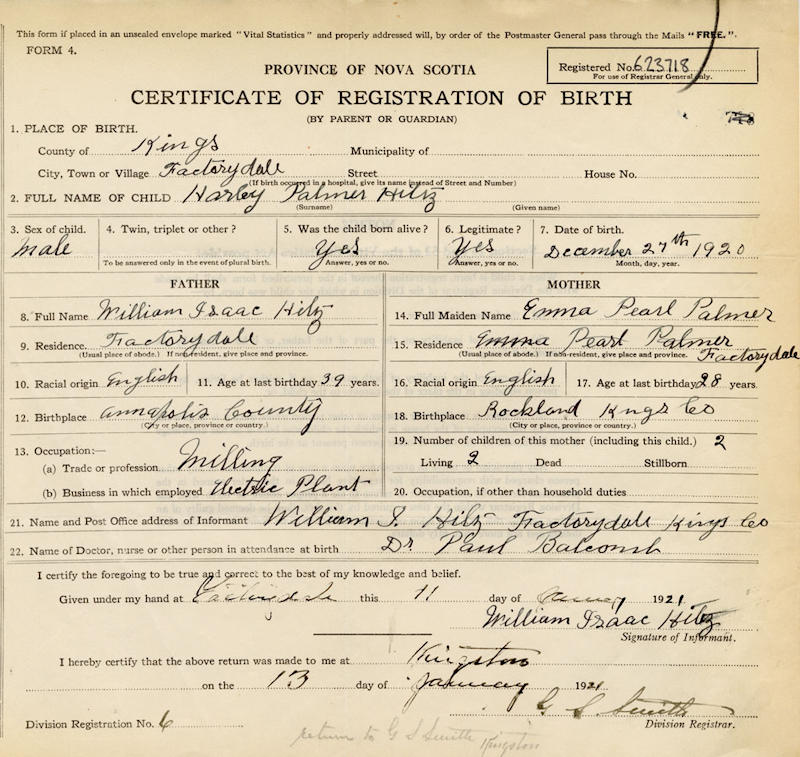 This form if placed in an unsealed envelope marked "Vital Statistics" and properly addressed will, by order of the Postmaster General pass through the Mails "FREE.".
FORM 4.
Registered No. 623718
For use of Registrar General only.
PROVINCE OF NOVA SCOTIA
CERTIFICATE OF REGISTRATION OF BIRTH
(BY PARENT OR GUARDIAN)
1. PLACE OF BIRTH.
County of Kings Municipality of
City, Town or Village Factorydale Street House No.
(If birth occurred in a hospital, give its name instead of Street and Number)
2. FULL NAME OF CHILD Harley Palmer Hiltz
(Surname) (Given name)
3. Sex of child. 4. Twin, triplet or other? 5. Was the child born alive? 6. Legitimate? 7. Date of birth.
Male Yes Yes December 27th 1920
To be answered only in the event of plural birth. Answer, yes or no. Answer, yes or no. Month, day, year.
FATHER MOTHER
8. Full Name William Isaac Hiltz 14. Full Maiden Name Emma Pearl Palmer
9. Residence. Factorydale 15. Residence Emma Pearl Palmer
(Usual place of abode.) If non-resident, give place and province. (Usual place of abode.) If non-resident, give place and province. Factorydale
10. Racial origin English 11. Age at last birthday 39 years. 16. Racial origin English 17. Age at last birthday 28 years.
12. Birthplace Annapolis County 18. Birthplace Rockland Kngs Co
(City or place, province or country.) (City or place, province or country.)
13. Occupation:— 19. Number of children of this mother (including this child.) 2
(a) Trade or profession. Milling Living 2 Dead Stillborn
(b) Business in which employed Electric Plant 20. Occupation, if other than household duties
21. Name and Post Office address of Informant William I. Hiltz Factorydale Kings Co
22. Name of Doctor, nurse or other person in attendance at birth Dr. Paul Balcomb
I certify the foregoing to be true and correct to the best of my knowledge and belief.
Given under my hand at this 11 day of 1921
William Isaac Hiltz
Signature of Informant.
I hereby certify that the above return was made to me at Kingston
on the 13 day of January 1921
G S. Smith
Division Registration No. 6 Division Registrar.
return to G S Smith Kingston